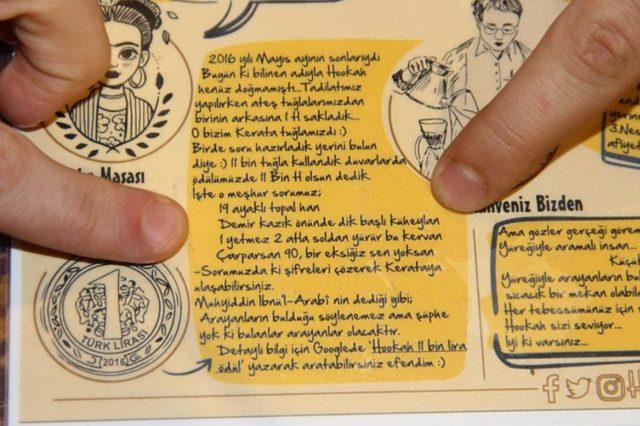 2016 yılı Mayıs ayının sonlarıydı
Bugün ki bilinen adıyla Hookah
henüz doğmamıştı...Tadilatımız
yapılırken ateş tuğlalarımızdan
birinin arkasına 1 H sakladık...
O bizim Kerata tuğlamızdı :)
Birde soru hazırladık yerini bulun
diye :) 11 bin tuğla kullandık duvarlarda
ödülümüzde 11 Bin H olsun dedik.
İşte o meşhur sorumuz;
19 ayaklı topal han
Demir kazık önünde dik başlı küheylan
1 yetmez 2 atla soldan yürür bu kervan
Çarparsan 90, bir eksiğiz sen yoksan
-Sorumuzda ki şifreleri çözerek Kerataya
ulaşabilirsiniz.
Muhyiddin İbnü'l-Arabî nin dediği gibi;
Arayanların bulduğu söylenemez ama şüphe
yok ki bulanlar arayanlar olacaktır.
Detaylı bilgi için Googlede 'Hookah 11 bin lira
ödül' yazarak aratabilirsiniz efendim :)
Masası
1
TÜRK LİRASI
2016
3.Ne
afiye
Bizden
Ama gözler gerçeği görem
Yüreğiyle aramalı insan...
Küçü
Yüreğiyle arayanların bu
sıcacık bir mekan olabil
Her tebessümünüz için
Hookah sizi seviyor...
İyi ki varsınız...